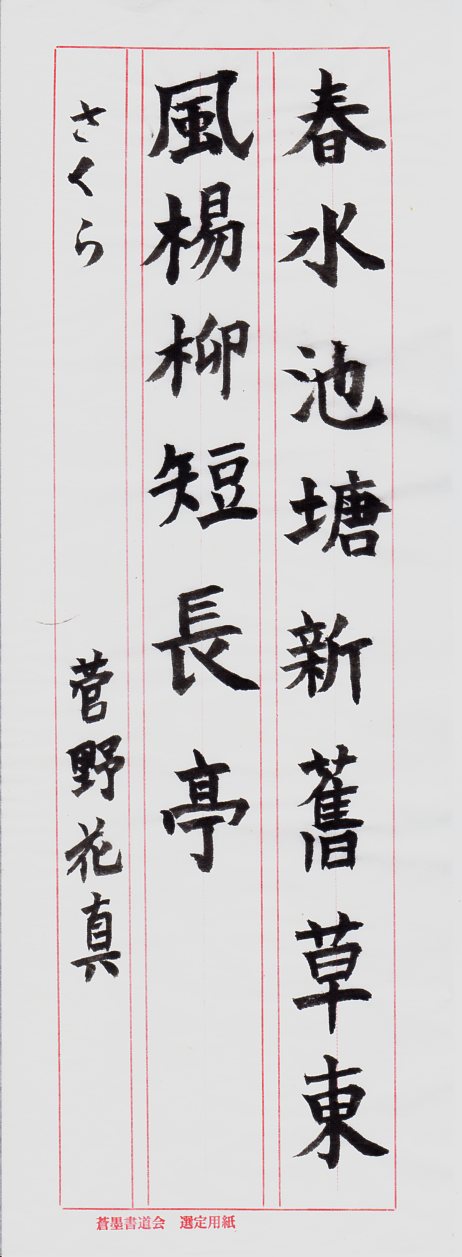 春水池塘新舊草東
風楊柳短長亭
さくら 菅野花真
蒼墨書道会 選定用紙